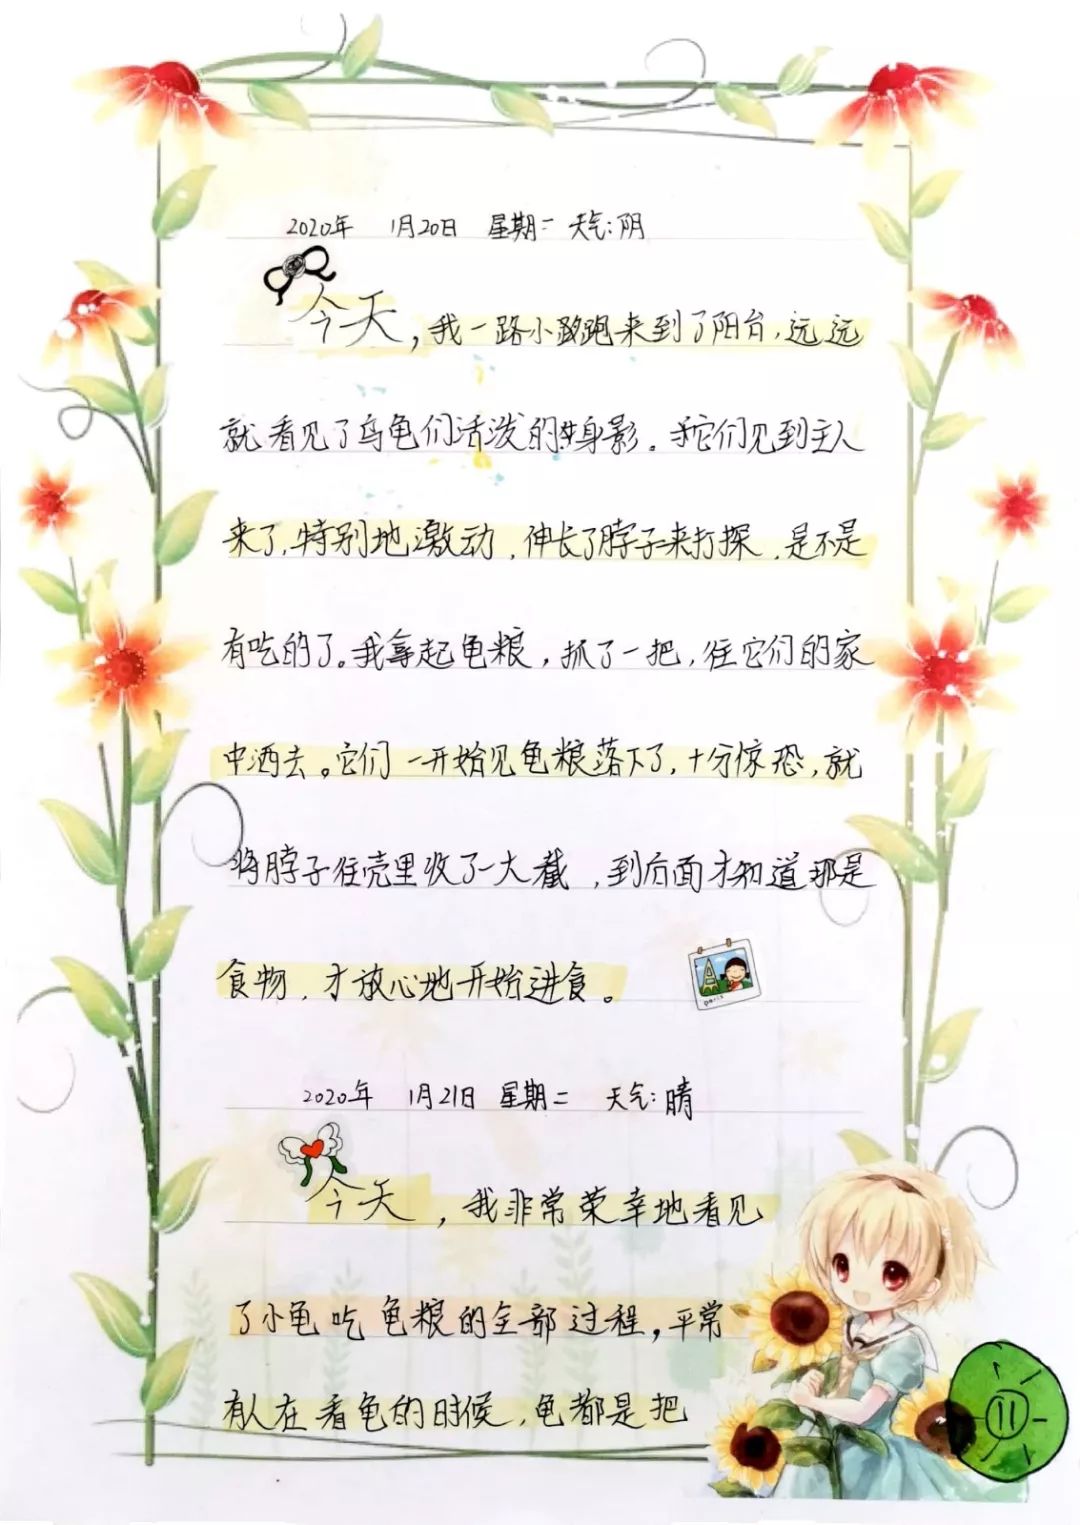 2020年 1月20日 星期二 天气:阴
今天，我一路小跑跑来到了阳台，远远
就看见了乌龟们活泼的身影。它们见到主人
来了，特别地激动，伸长了脖子来打探，是不是
有吃的了。我拿起龟粮，抓了一把，往它们的家
中洒去。它们一开始见龟粮落下了，十分惊恐，就
将脖子往壳里收了一大截，到后面才知道那是
食物，才放心地开始进食。
2020年 1月21日 星期二 天气:晴
今天，我非常荣幸地看见
了小龟吃龟粮的全部过程，平常
有人在看龟的时候，龟都是把
11